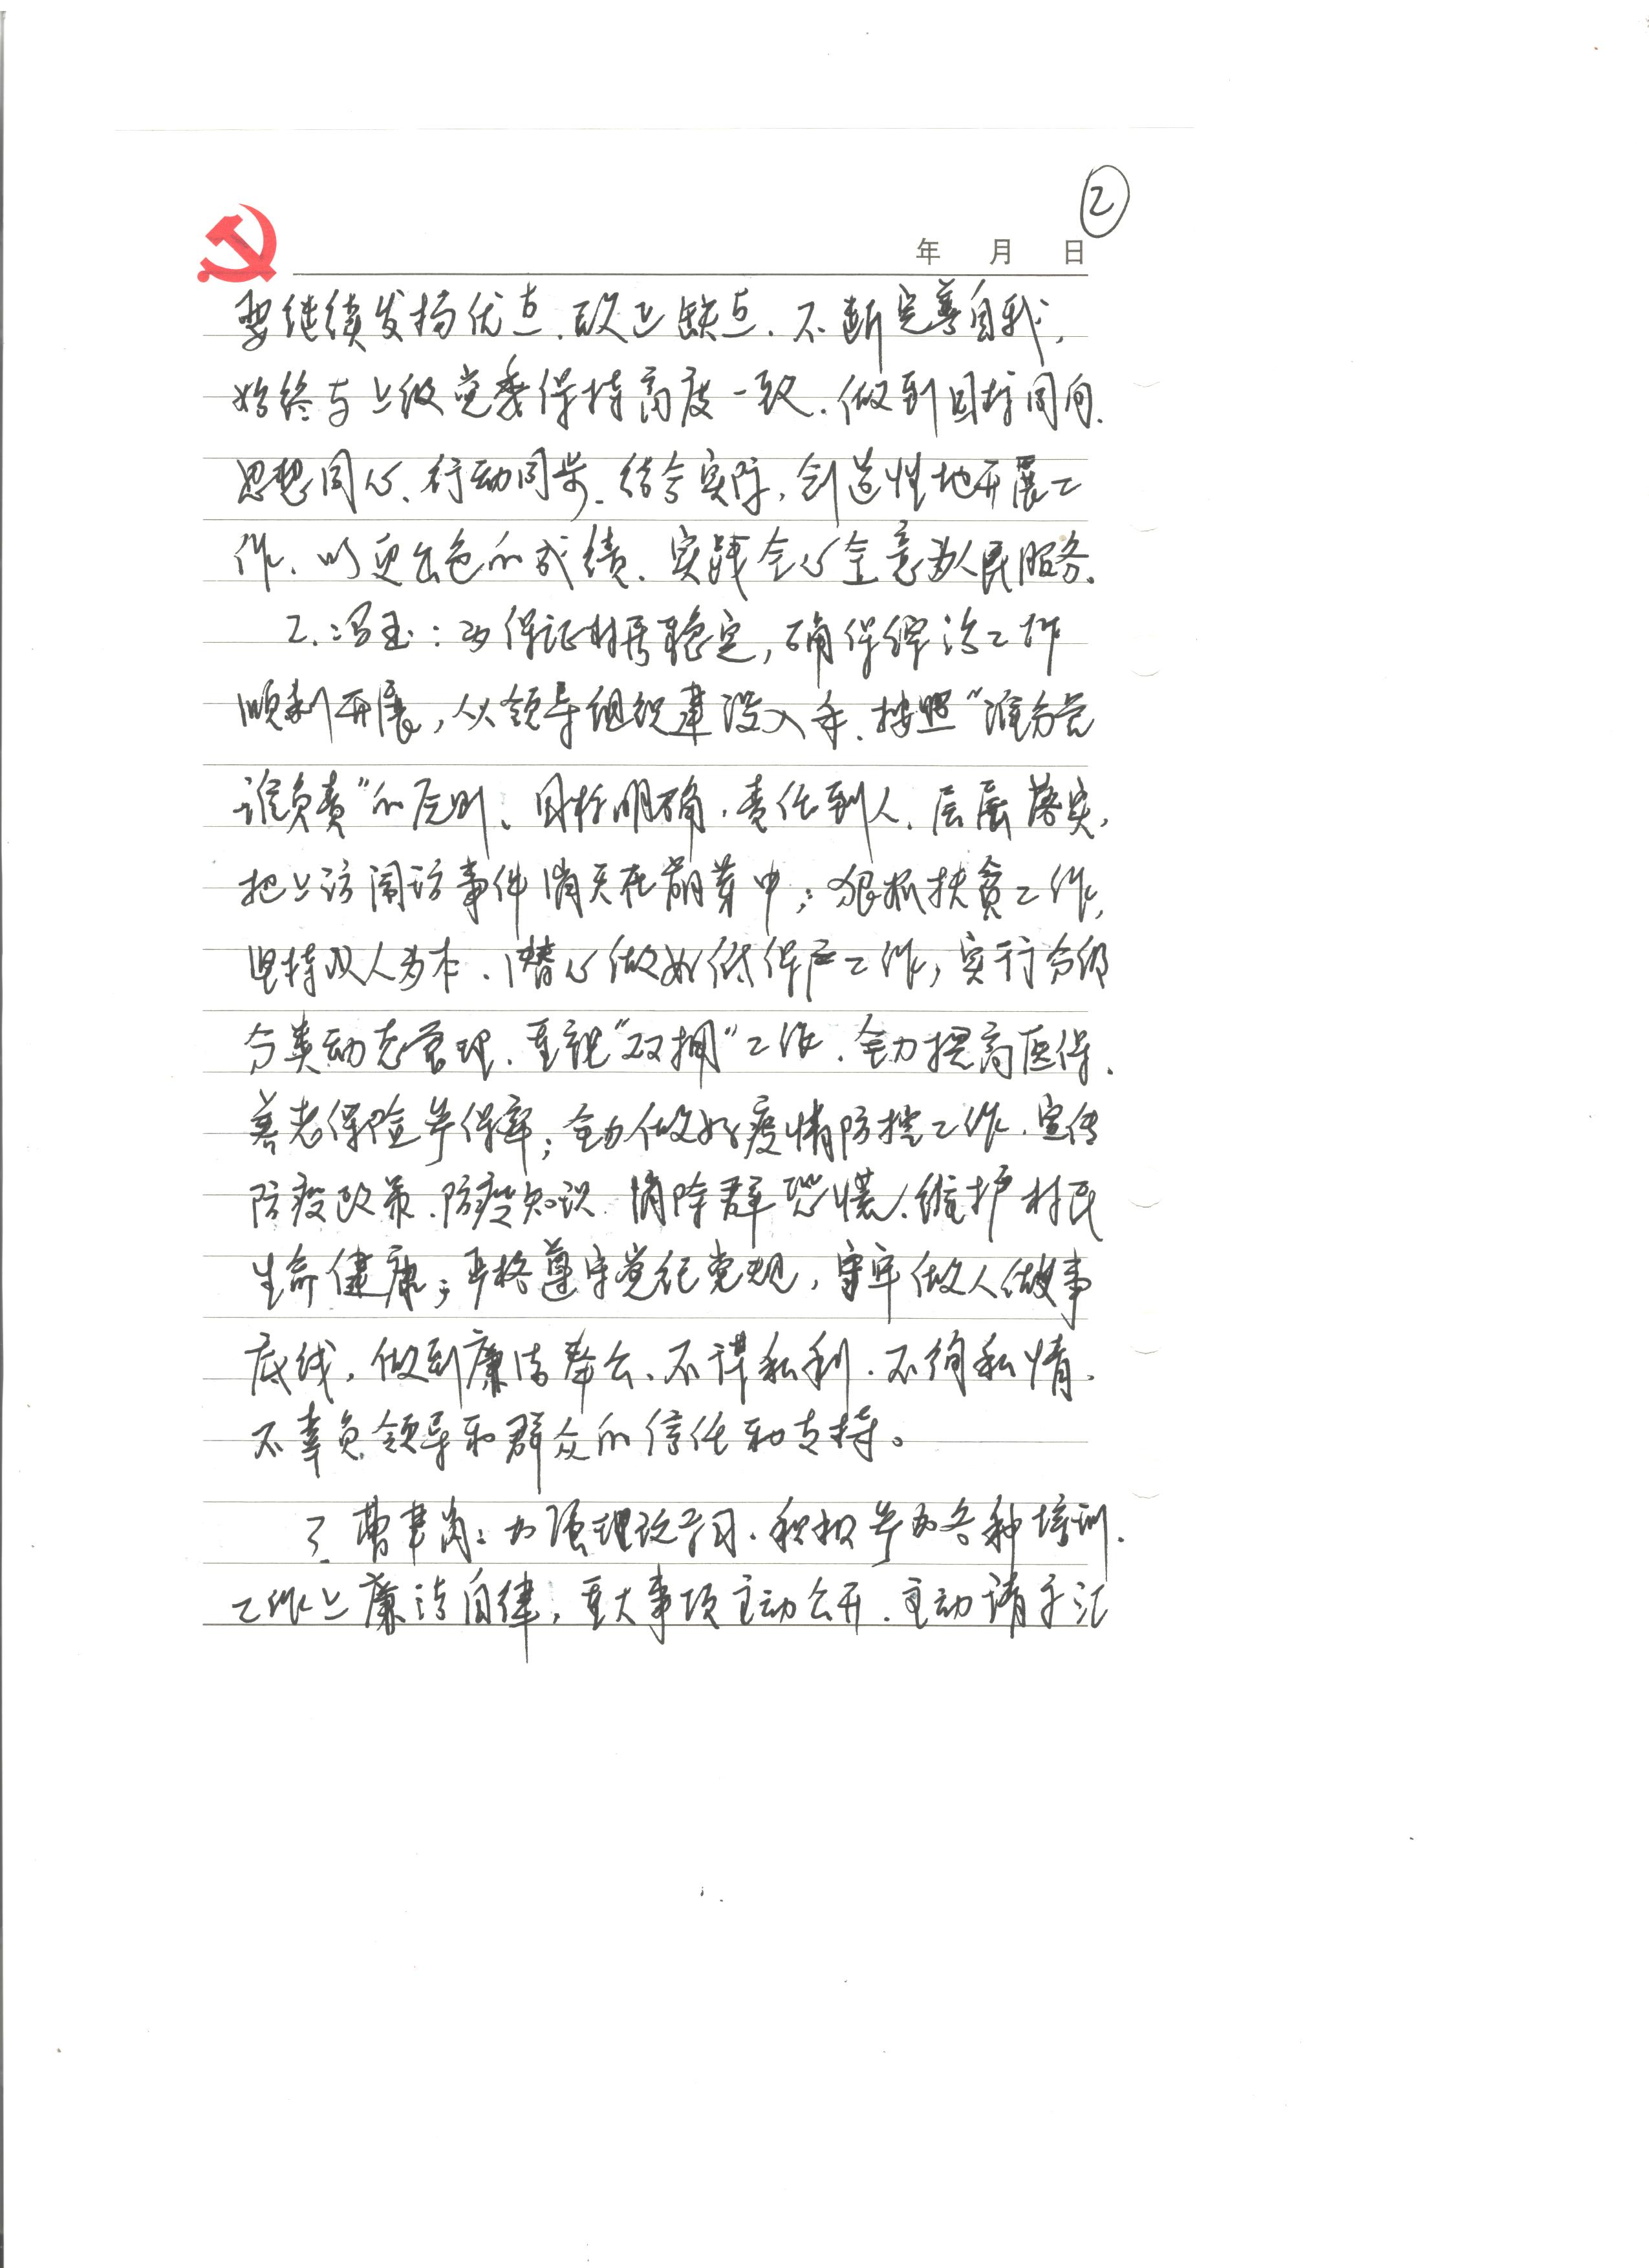 ②
年 月 日
要继续发扬优点、改正缺点、不断完善自我,
始终与上级党委保持高度一致、做到目标同向、
思想同心、行动同步、结合实际,创造性地开展工
作、以更出色的成绩、实践全心全意为人民服务。
2.冯玉:为保证村务稳定,确保综治工作
顺利开展,从领导组织建设入手、按照“谁分管
谁负责”的原则、目标明确,责任到人、层层落实,
把上访闹访事件消灭在萌芽中;狠抓扶贫工作,
坚持以人为本、潜心做好低保户工作,实行分级
分类动态管理、重视“双拥”工作、全力提高医保、
养老保险参保率;全力做好疫情防控工作、宣传
防疫政策、防疫知识、消除群恐慌、维护村民
生命健康;严格遵守党纪党规,守牢做人做事
底线,做到廉洁奉公、不谋私利、不徇私情、
不辜负领导和群众的信任和支持。
3.曹肖:加强理论学习、积极参加各种培训、
工作上廉洁自律,重大事项主动公开、主动请示汇